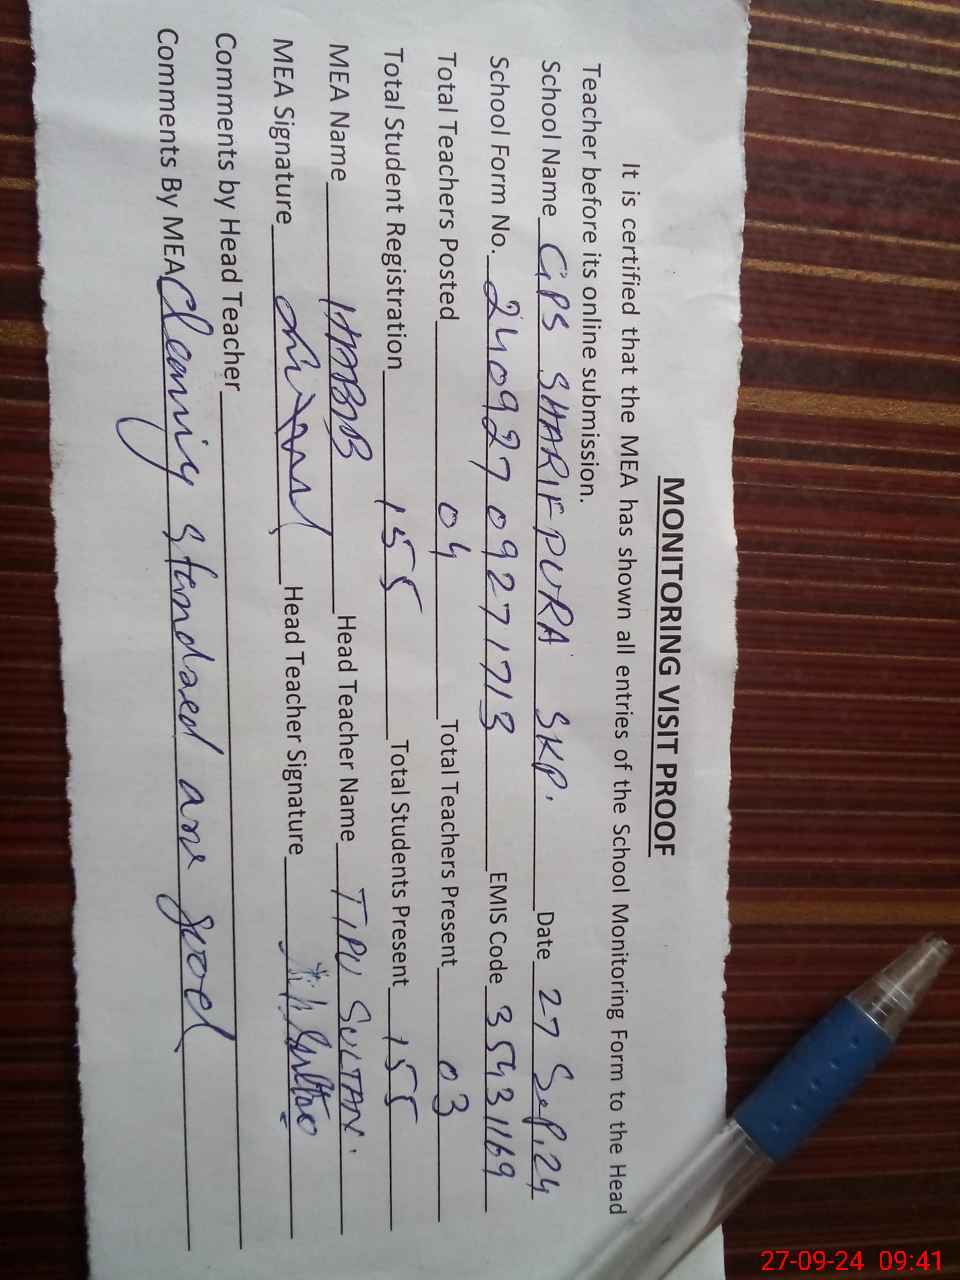 MONITORING VISIT PROOF
It is certified that the MEA has shown all entries of the School Monitoring Form to the Head
Teacher before its online submission.
School Name GPS SHARIFPURA SKP. Date 27 Sep, 24
School Form No. 240927 09271713 EMIS Code 35431169
Total Teachers Posted 04 Total Teachers Present 03
Total Student Registration 155 Total Students Present 155
MEA Name HABIB Head Teacher Name TIPU SULTAN.
MEA Signature Head Teacher Signature
Comments by Head Teacher
Comments By MEA Cleaning Standaed are good
27-09-24 09:41